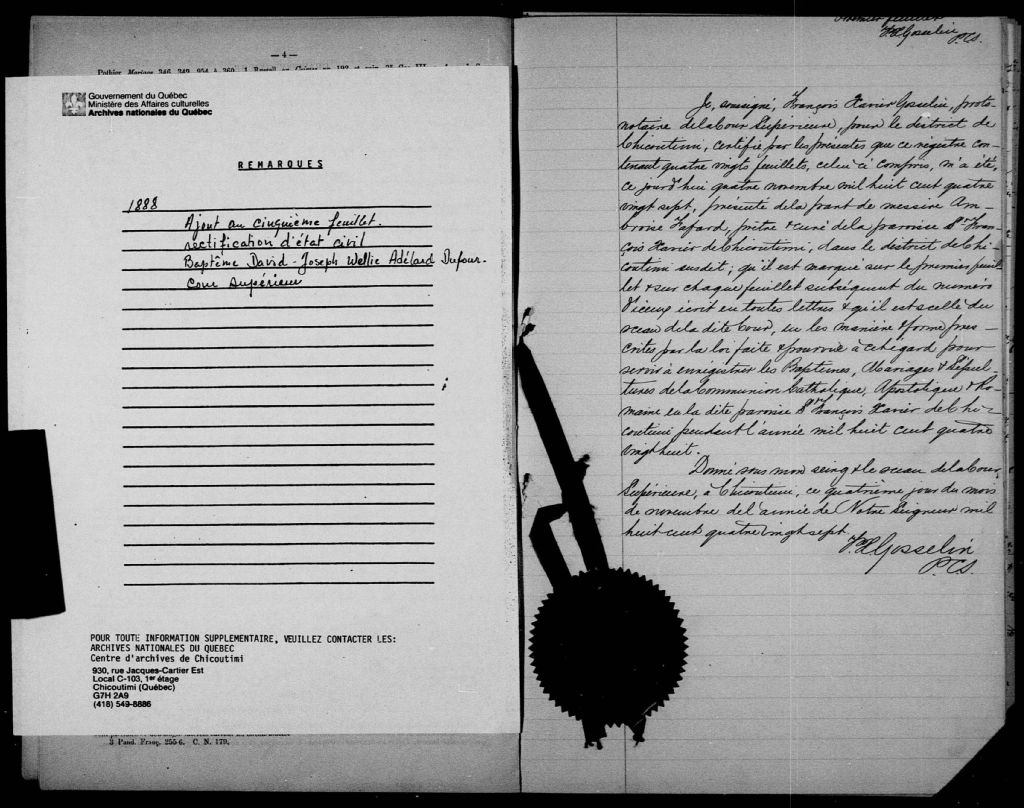 — 4 —
Pothier, Mariage
Gouvernement du Québec
Ministère des Affaires culturelles
Archives nationales du Québec
REMARQUES
1888
Ajout au cinquième feuillet.
rectification d'état civil
Baptême David-Joseph Wellie Adélard Dufour.
cour supérieur
POUR TOUTE INFORMATION SUPPLEMENTAIRE, VEUILLEZ CONTACTER LES:
ARCHIVES NATIONALES DU QUEBEC
Centre d'archives de Chicoutimi
930, rue Jacques-Cartier Est
Local C-103, 1er étage
Chicoutimi (Québec)
G7H 2A9
(418) 549-8886
3 Pand. Franç. 255-6. C. N. 179.
Premier feuillet
F.X. Gosselin
P.C.S.
Je, soussigné, François Xavier Gosselin, proto-
notaire de la Cour Supérieure, pour le district de
Chicoutimi, certifie par les présentes que ce régistre con-
tenant quatre vingts feuillets, celui ci compris, m'a été,
ce jourd'hui quatre novembre mil huit cent quatre
vingt sept, présenté de la part de messire Am-
broise Fafard, prêtre & curé de la paroisse St Fran-
çois Xavier de Chicoutimi, dans le district de Chi-
coutimi susdit; qu'il est marqué sur le premier feuil
let & sur chaque feuillet subséquent du numéro
d'iceux écrit en toutes lettres & qu'il est scellé du
sceau de la dite Cour, en les manière & forme pres-
crites par la loi faite & pourvue à cet égard pour
servir à enregistrer les Baptêmes, Mariages & Sépul-
tures de la Communion Catholique, Apostolique & Ro-
maine en la dite paroisse St François Xavier de Chi-
coutimi pendant l'année mil huit cent quatre
vingt huit.
Donné sous mon seing & le sceau de la Cour
Supérieure, à Chicoutimi, ce quatrième jour du mois
de novembre de l'année de Notre Seigneur mil
huit cent quatre vingt sept.
F.X. Gosselin
P.C.S.